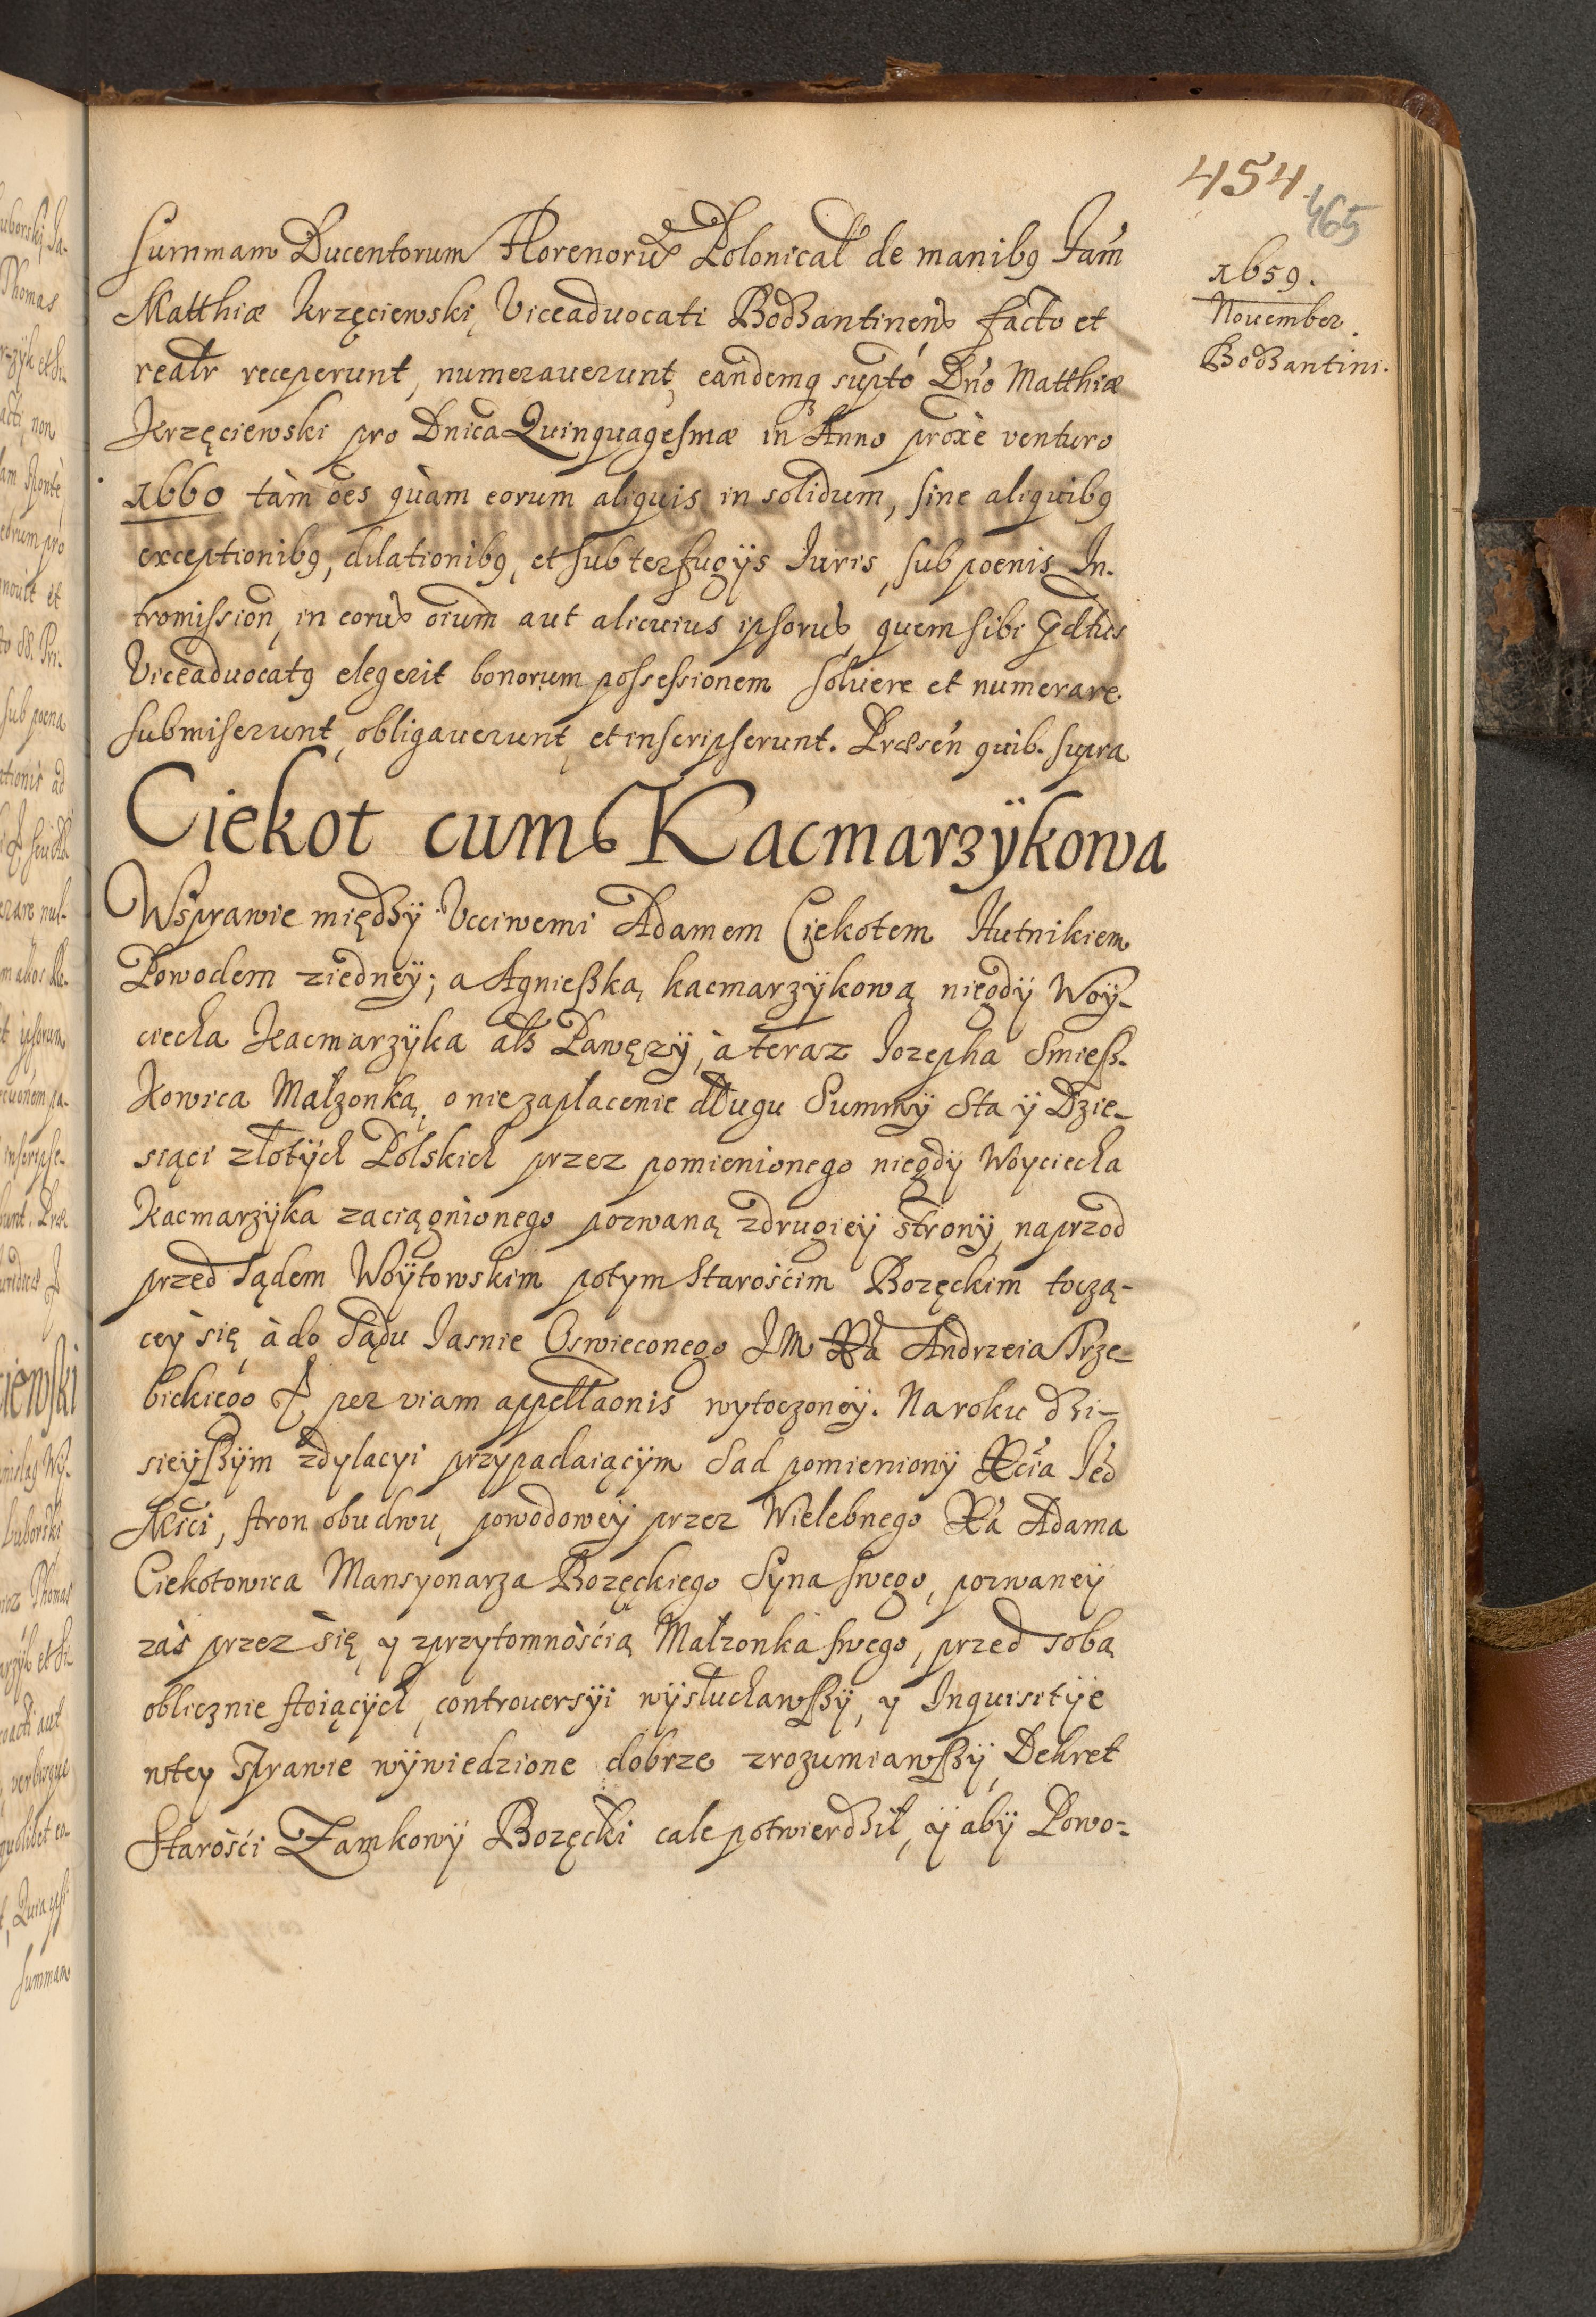 454.
465
1659.
November.
Bodzantini.
summam Ducentorum Florenorũ Polonical de manibq Fam
Matthiæ Krzęciewski Viceadvocati Bodzantinens facto et
realr receperunt, numeraverunt, eandemq supto Dno Matthiæ
Krzęciewski pro Dnica Quinquagesmæ in Anno proxè venturo
1660 tàm oẽs quàm eorum aliquis in solidum, sine aliquibq
exceptionibq, dilationibq, et subterfugijs Iuris, sub poenis In-
tromission, in eorũ oium aut alicuius ipsorũ, quem sibi
Viceadvocatq elegerit bonorum possessionem solvere et numerare
submiserunt, obligaverunt, et inscripserunt. Præsen quib. supra
Ciekot cum Kacmarzÿkowa
Wsprawie międzÿ Vcciwemi Adamem Ciekotem Hutnikiem
Powodem ziedneÿ; a Agnieszką kacmarzÿkową niegdÿ Woÿ-
ciecha Kacmarzÿka als Pawęzÿ, à teraz Iozepha Smiesz-
kowica Małzonką, o niezapłacenie długu Summÿ Sta ÿ Dzie-
siąci złotÿch Polskich przez pomienionego niegdÿ Woyciecha
Kacmarzÿka zaciągnionego pozwaną zdrugieÿ stronÿ, naprzod
przed Sądem Woÿtowskim potym Starośćim Bozęckim toczą-
ceÿ się à do Sądu Iasnie Oswieconego IM Xa Andrzeia Trze-
bickiego &, per viam appellaonis wytoczoneÿ. Na roku dzi-
sieÿszÿm zdylacyi przypadaiącÿm Sad pomienionÿ Xcia Ieo
Mści, stron obudwu, powodoweÿ przez Wielebnego Xa Adama
Ciekotowica Mansyonarza Bozęckiego Syna swego, pozwaneÿ
zaś przez się, y zprzytomnośćią Małzonka swego, przed sobą
oblicznie stoiącÿch, controversÿi wÿsłuchawszÿ, y Inquisitÿe
wtey sprawie wÿwiedzione dobrze zrozumiawszÿ, Dekret
Starośći Zamkowÿ Bozęcki cale potwierdził, ÿ abÿ Powo-